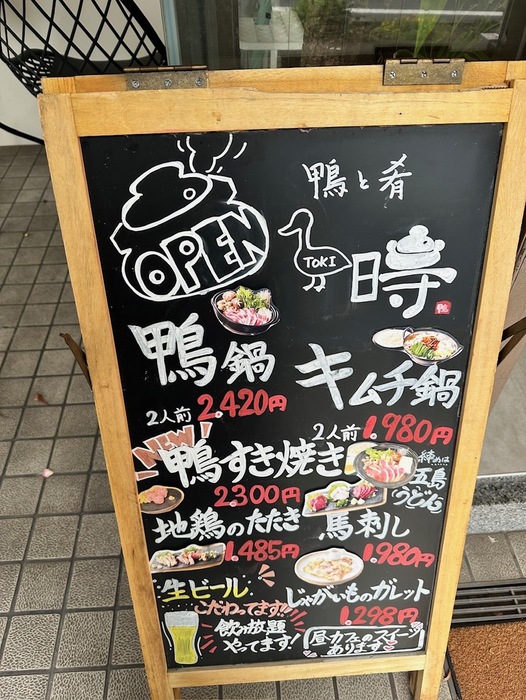 OPEN
鴨と肴
TOKI
時
鴨
鴨鍋
2人前 2.420円
キムチ鍋
2人前 1.980円
NEW!
鴨すき焼き
2.300円
締めは
五島
うどん
地鶏のたたき
1.485円
馬刺し
1.980円
生ビール
こだわってます!!
飲み放題
やってます!
じゃがいものガレット
1.298円
昼カフェのスイーツ
あります